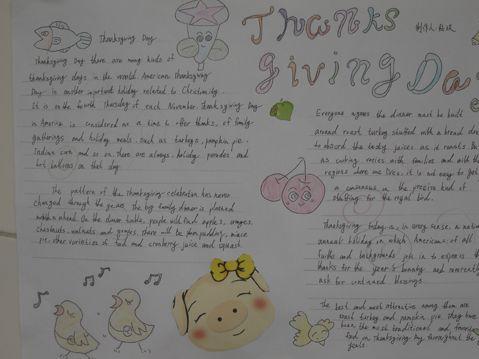 Thanks
Giving Da
Thanksgiving Day
Thanksgiving Day there are many kinds of
thanksgiving days in the world. American Thanksgiving
Day is another important holiday related to Christianity.
It is on the fourth Thursday of each November. Thanksgiving Day
in America is considered as a time to offer thanks, of family
gatherings and holiday meals. Such as turkeys, pumpkin pie,
Indian corn and so on. There are always holiday parades and
hot balloons on that day.
The pattern of the Thanksgiving celebration has never
changed through the years. The big family dinner is planned
months ahead. On the dinner table, people will find apples, oranges,
chestnuts, walnuts and grapes, there will be plum pudding, mince
pie, other varieties of food and cranberry juice and squash.
Everyone agrees the dinner must be built
around roast turkey stuffed with a bread dre
to absorb the tasty juices as it roasts. Bu
as cooking varies with families and with the
regions where one lives, it is not easy to get
a consensus on the precise kind of
stuffing for the royal bird.
Thanksgiving today is, in every sense, a nation
annual holiday in which Americans of all
faiths and backgrounds join in to express th
thanks for the year's bounty and reverently
ask for continued blessings.
The best and most attractive among them are
roast turkey and pumpkin pie. They have
been the most traditional and favorite
food on Thanksgiving Day throughout the